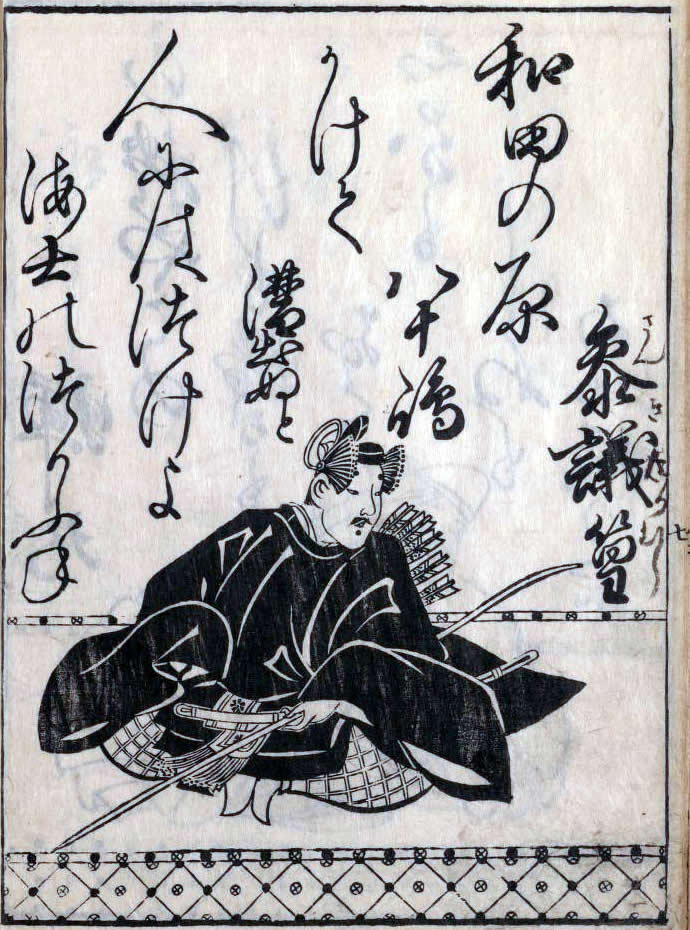 參議篁
さんきたかむら
和田の原
八十嶋
かけて
漕出ぬと
人にはつけよ
海士のつりふね
七